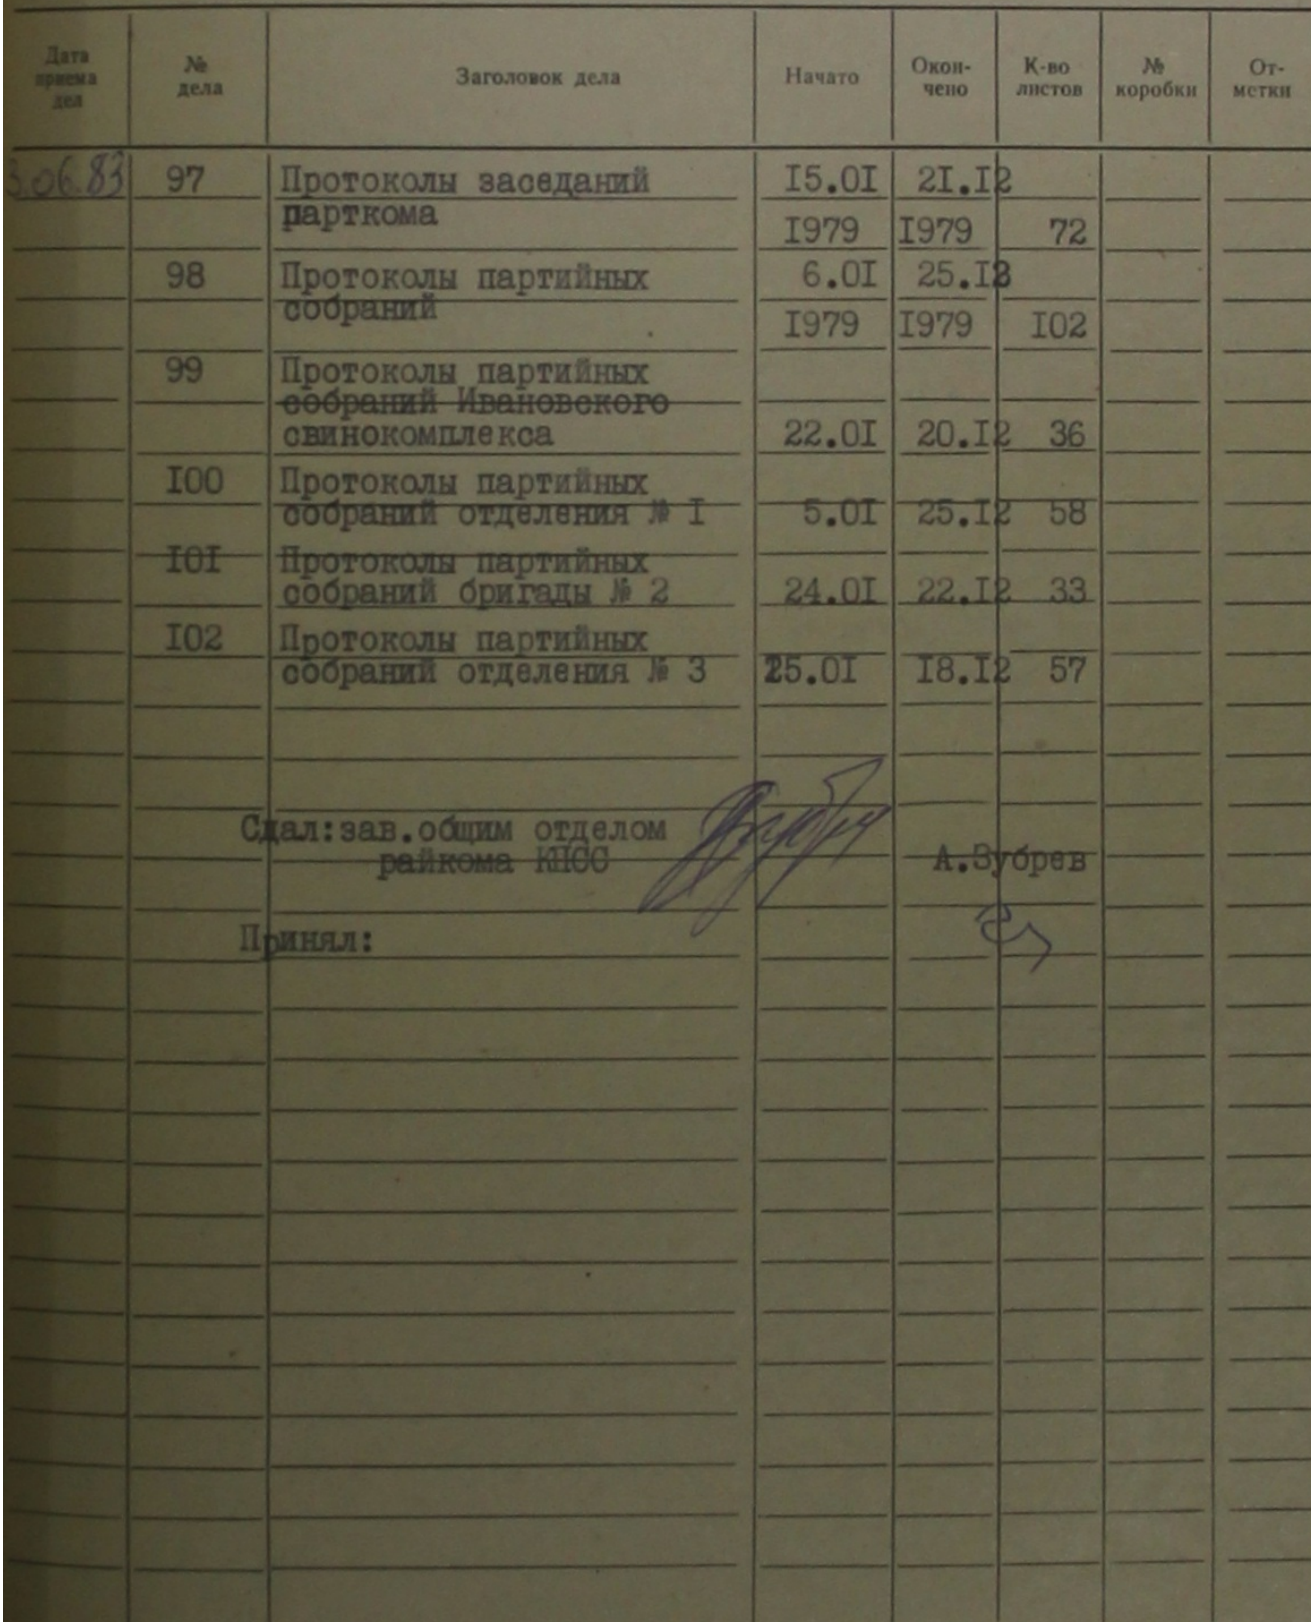 Дата приема дел № дела Заголовок дела Начато Окон-чено К-во листов № коробки От-метки
3.06.83 97 Протоколы заседаний 15.01 21.12
парткома
1979 1979 72
98 Протоколы партийных 6.01 25.12
собраний
1979 1979 102
99 Протоколы партийных
собраний Ивановского
свинокомплекса 22.01 20.12 36
100 Протоколы партийных
собраний отделения № 1 5.01 25.12 58
101 Протоколы партийных
собраний бригады № 2 24.01 22.12 33
102 Протоколы партийных
собраний отделения № 3 25.01 18.12 57
Сдал:зав.общим отделом
райкома КПСС А.Зубрев
Принял: